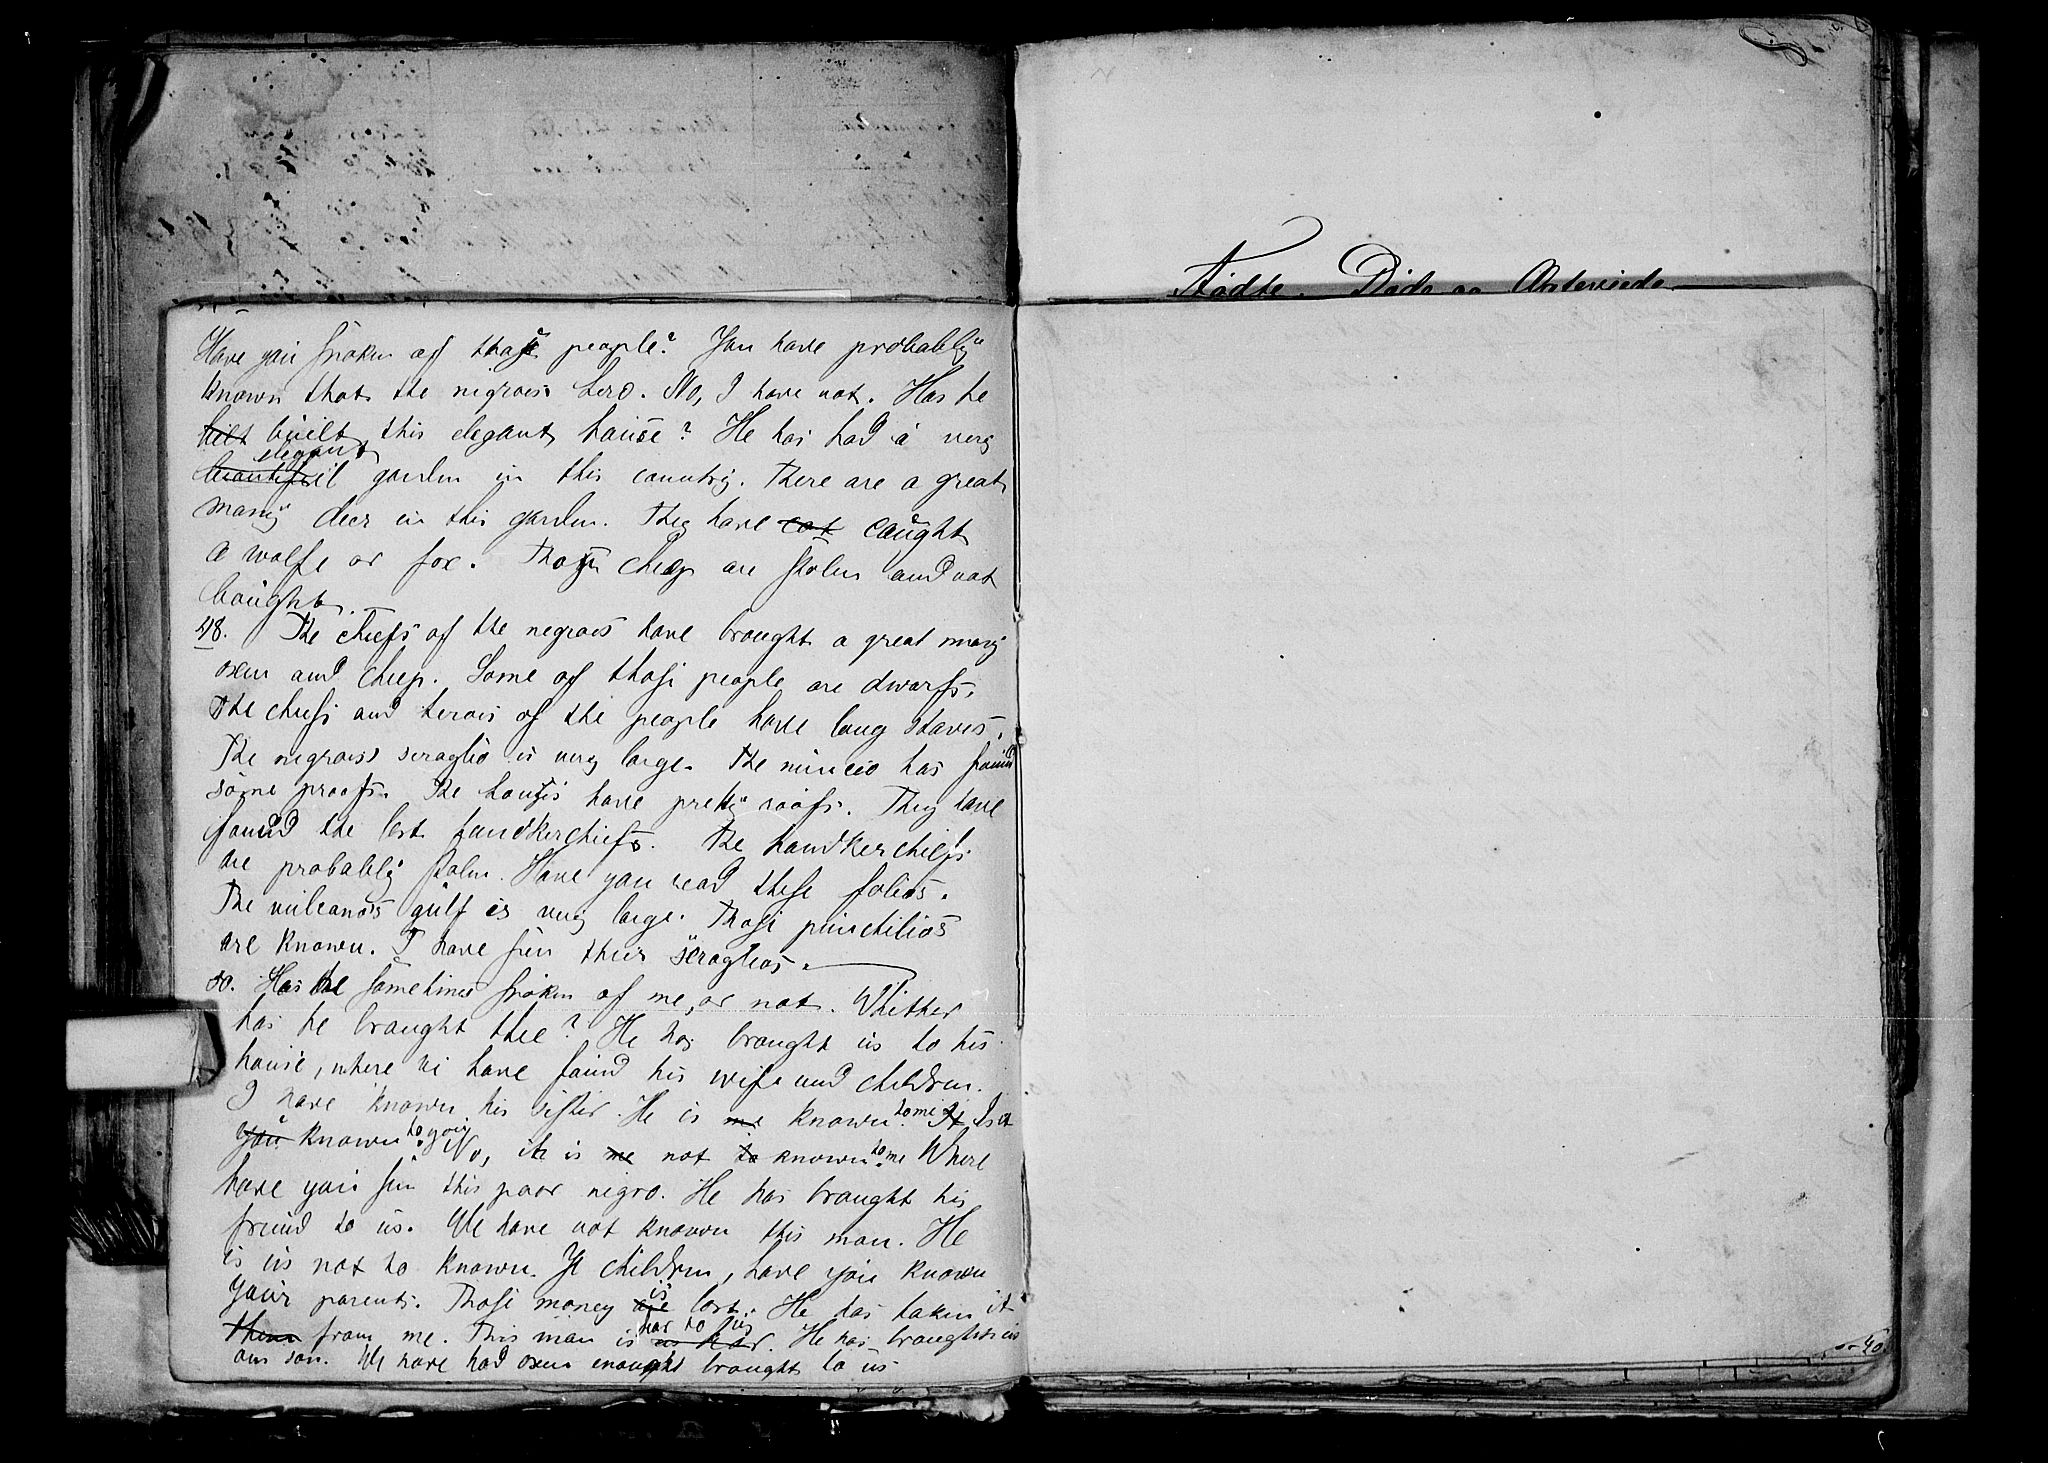 Have you spoken of those people? You have probably
known that the negroes hero. No, I have not. Has he
bilt built this elegant house? He has had a very
elegant
beautiful garden in this country. There are a great
many deer in this garden. They have cat caught
a wolfe or fox. Those cheep are stolen and not
bought.
48. The chiefs of the negroes have brought a great many
oxen and cheep. Some of those people are dwarfs.
The chiefs and heroes of the people have long staves.
The negroes seraglio is very large. The nuncio has found
some proofs. The houses have pretty roofs. They have
found the lost handkerchiefs. The handkerchiefs
are probably stolen. Have you read these folios.
The vulcanos gulf is very large. Those punctilios
are known. I have seen their seraglios.
50. Has he sometimes spoken of me, or not. Whither
has he brought thee? He has brought us to his
house, where we have found his wife and children.
I have known his sister. He is me known to me. It Is it
you known to you? No, it is me not to known to me Where
have you seen this poor negro. He has brought his
freind to us. We have not known this man. He
is us not to known. Ye children, have you known
your parents. Those money are is lost. He has taken it
them from me. This man is us har har to us. He has brought us
our son. We have had oxen enough brought to us
Fødte. Døde og Onstereiede